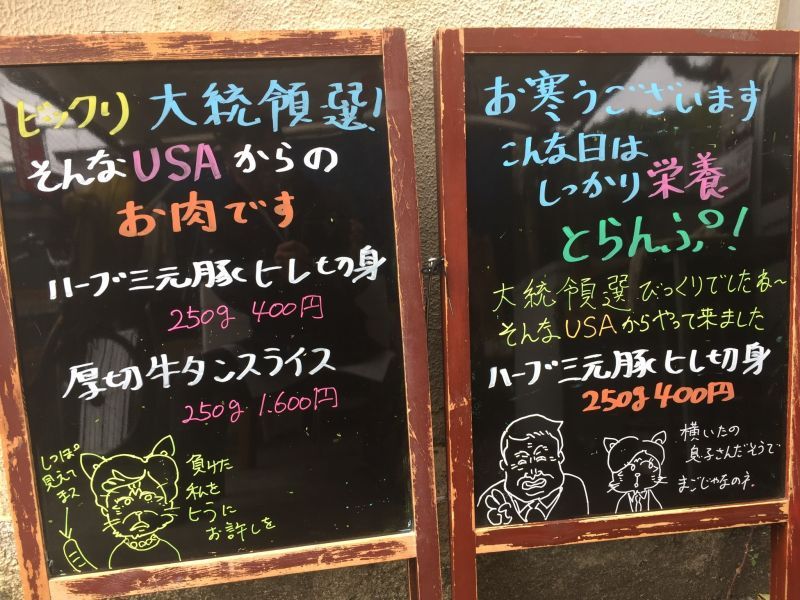 ビックリ 大統領選!
そんなUSAからの
お肉です
ハーブ三元豚ヒレ切身
250g 400円
厚切牛タンスライス
250g 1.600円
しっぽ
見えて
ます
負けた
私を
ヒラに
お許しを
お寒うございます
こんな日は
しっかり栄養
とらんぷ!
大統領選びっくりでしたね〜
そんなUSAからやって来ました
ハーブ三元豚ヒレ切身
250g 400円
横いたの
息子さんだそうで
まごじゃなのネ